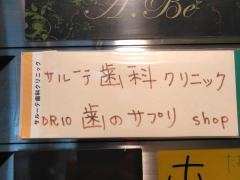 A.Be
サルーテ歯科クリニック
サルーテ歯科クリニック
DR10 歯のサプリ shop